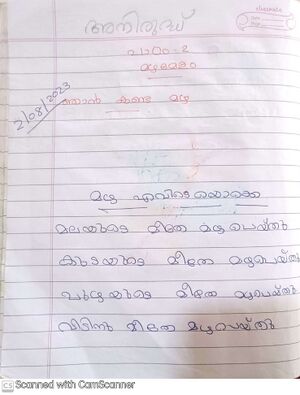 അനിരുദ്ധ്
പാഠം-2
മഴമേളം
2/08/2023
ഞാൻ കണ്ട മഴ
മഴ എവിടെയൊക്കെ
മലയുടെ മീതേ മഴപെയ്തു
കുടയുടെ മീതേ മഴപെയ്തു
പുഴയുടെ മീതേ മഴപെയ്തു
വീടിനു മീതേ മഴപെയ്തു
CS Scanned with CamScanner